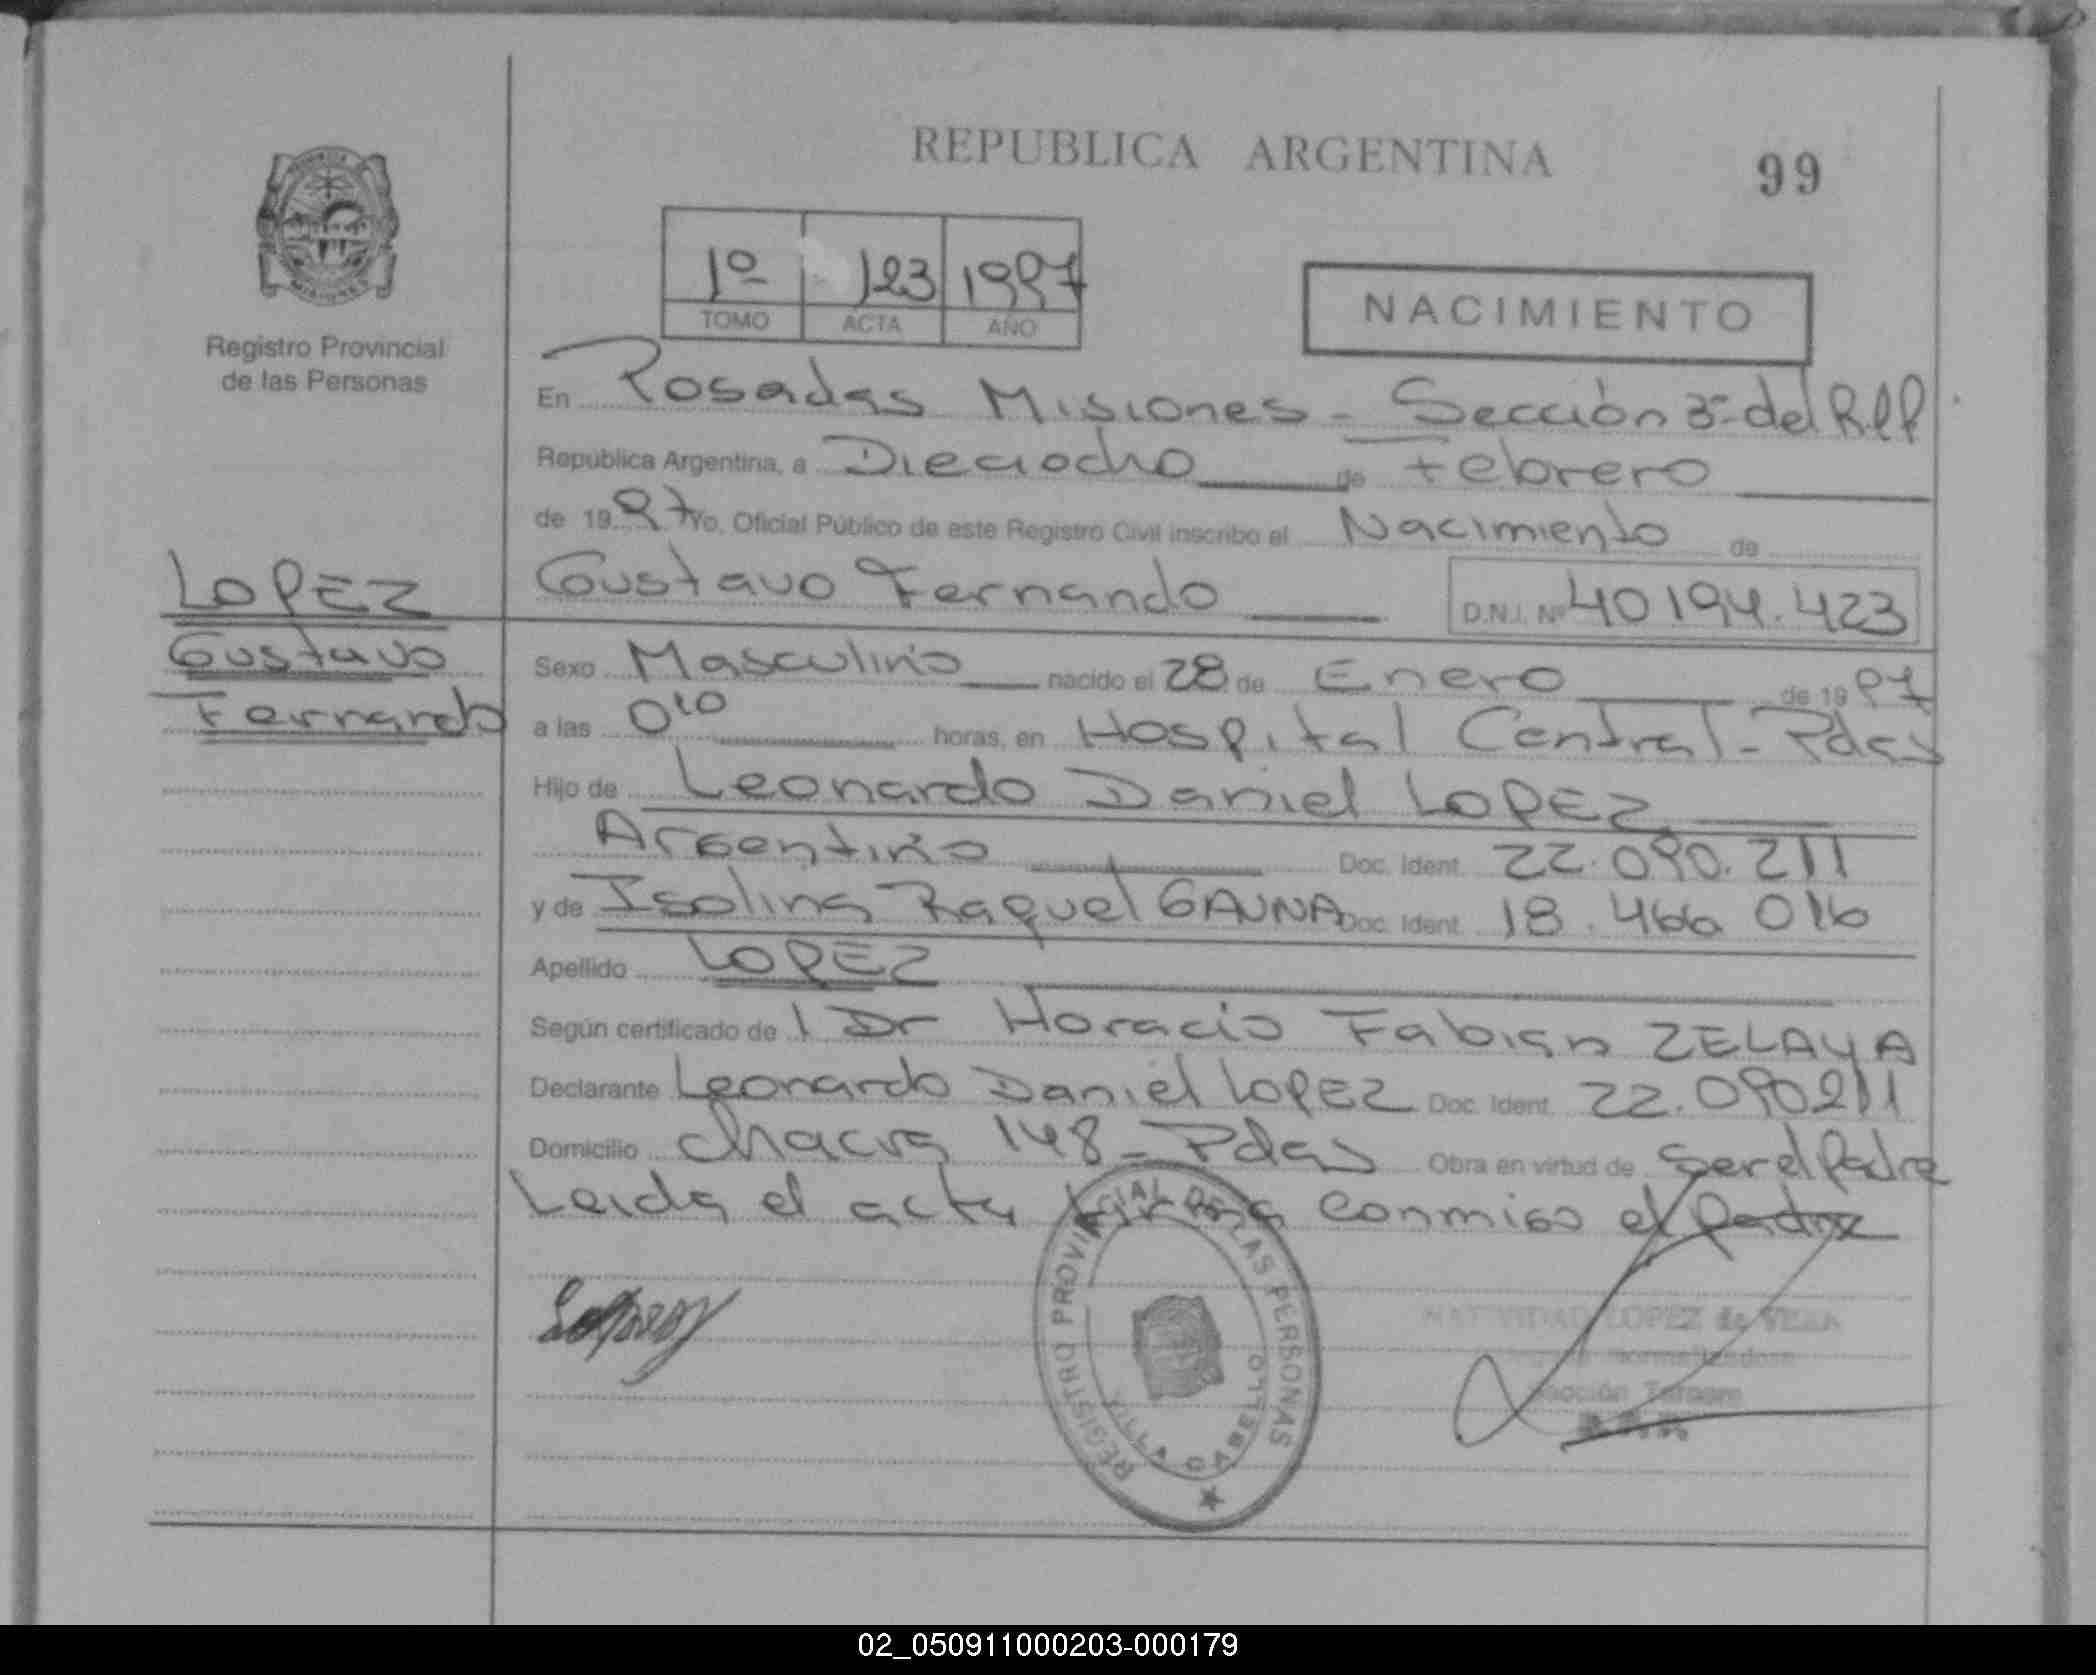 REPUBLICA ARGENTINA
99
PROVINCIA
MISIONES
Registro Provincial
de las Personas
1º 123 1997
TOMO ACTA AÑO
NACIMIENTO
En Posadas Misiones - Sección 3ª del R.P.P.
República Argentina, a Dieciocho de Febrero
de 1997 Yo, Oficial Público de este Registro Civil inscribo el Nacimiento de
Gustavo Fernando D.N.I. Nº 40194.423
LOPEZ
Gustavo
Fernando
Sexo Masculino nacido el 28 de Enero de 1997
a las 0¹⁰ horas, en Hospital Central - Pdas
Hijo de Leonardo Daniel LOPEZ
Argentino Doc. Ident. 22.090.211
y de Isolina Raquel GAUNA Doc. Ident. 18.466 016
Apellido LOPEZ
Según certificado de l Dr Horacio Fabian ZELAYA
Declarante Leonardo Daniel LOPEZ Doc. Ident. 22.090211
Domicilio Chacra 148 - Pdas Obra en virtud de ser el Padre
Leida el acta firma conmigo el Padre
REGISTRO PROVINCIAL DE LAS PERSONAS
VILLA CABELLO
NATIVIDAD LOPEZ de VERA
02_050911000203-000179